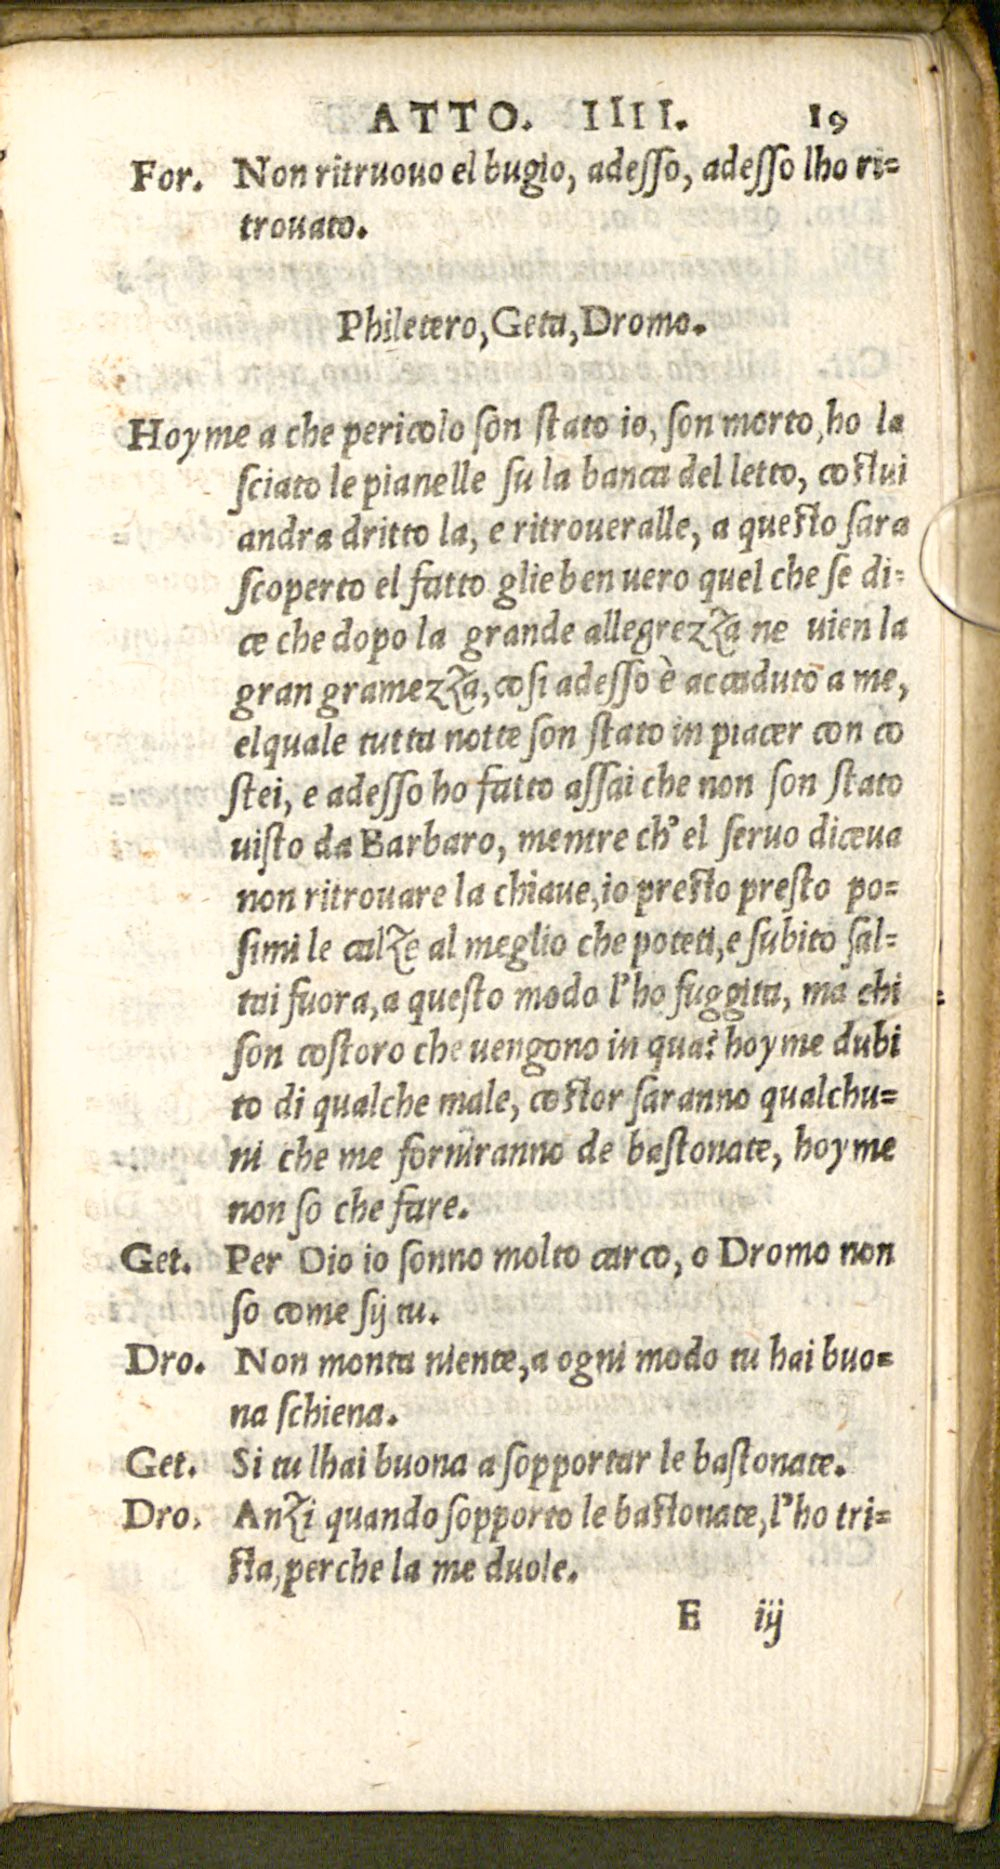 ATTO. IIII. 19
For. Non ritruouo el bugio, adesso, adesso lho ri=
trouato.
Philetero, Geta, Dromo.
Hoyme a che pericolo son stato io, son morto, ho la
sciato le pianelle su la banca del letto, costui
andra dritto la, e ritroueralle, a questo sara
scoperto el fatto glie ben uero quel che se di=
ce che dopo la grande allegrezza ne uien la
gran gramezza, cosi adesso è accaduto a me,
elquale tutta notte son stato in piacer con co
stei, e adesso ho fatto assai che non son stato
uisto da Barbaro, mentre ch'el seruo diceua
non ritrouare la chiaue, io presto presto po=
simi le calze al meglio che poteti, e subito sal=
tai fuora, a questo modo l'ho fuggita, ma chi
son costoro che uengono in qua? hoyme dubi
to di qualche male, costor saranno qualchu=
ni che me forniranno de bastonate, hoyme
non so che fare.
Get. Per Dio io sonno molto carco, o Dromo non
so come sij tu.
Dro. Non monta niente, a ogni modo tu hai buo=
na schiena.
Get. Si tu lhai buona a sopportar le bastonate.
Dro. Anzi quando sopporto le bastonate, l'ho tri=
sta, perche la me duole.
E iij